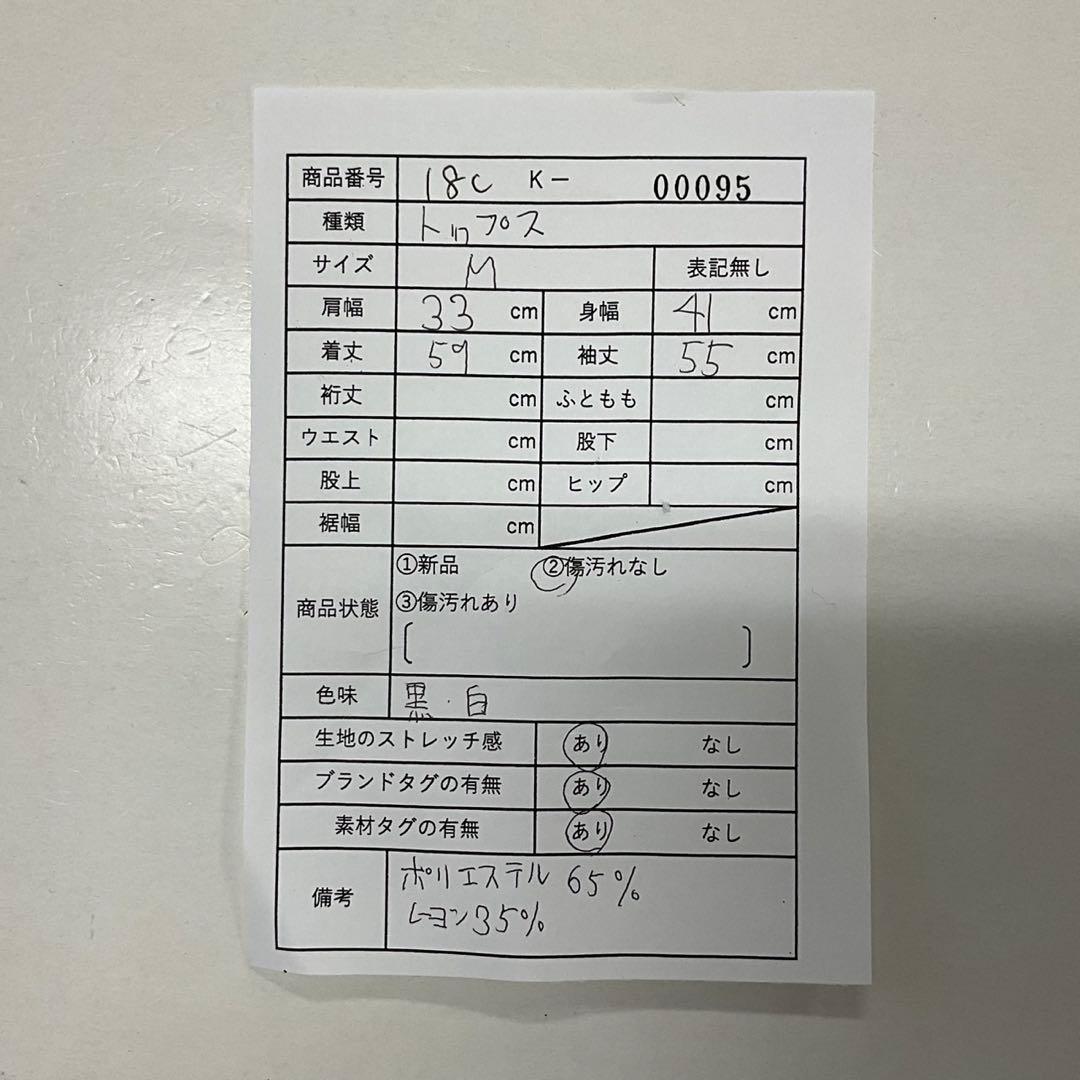 商品番号 18c K- 00095
種類 トップス
サイズ M 表記無し
肩幅 33 cm 身幅 41 cm
着丈 59 cm 袖丈 55 cm
裄丈 cm ふともも cm
ウエスト cm 股下 cm
股上 cm ヒップ cm
裾幅 cm
①新品 ②傷汚れなし
商品状態 ③傷汚れあり
[ ]
色味 黒・白
生地のストレッチ感 あり なし
ブランドタグの有無 あり なし
素材タグの有無 あり なし
備考 ポリエステル 65%
レーヨン35%